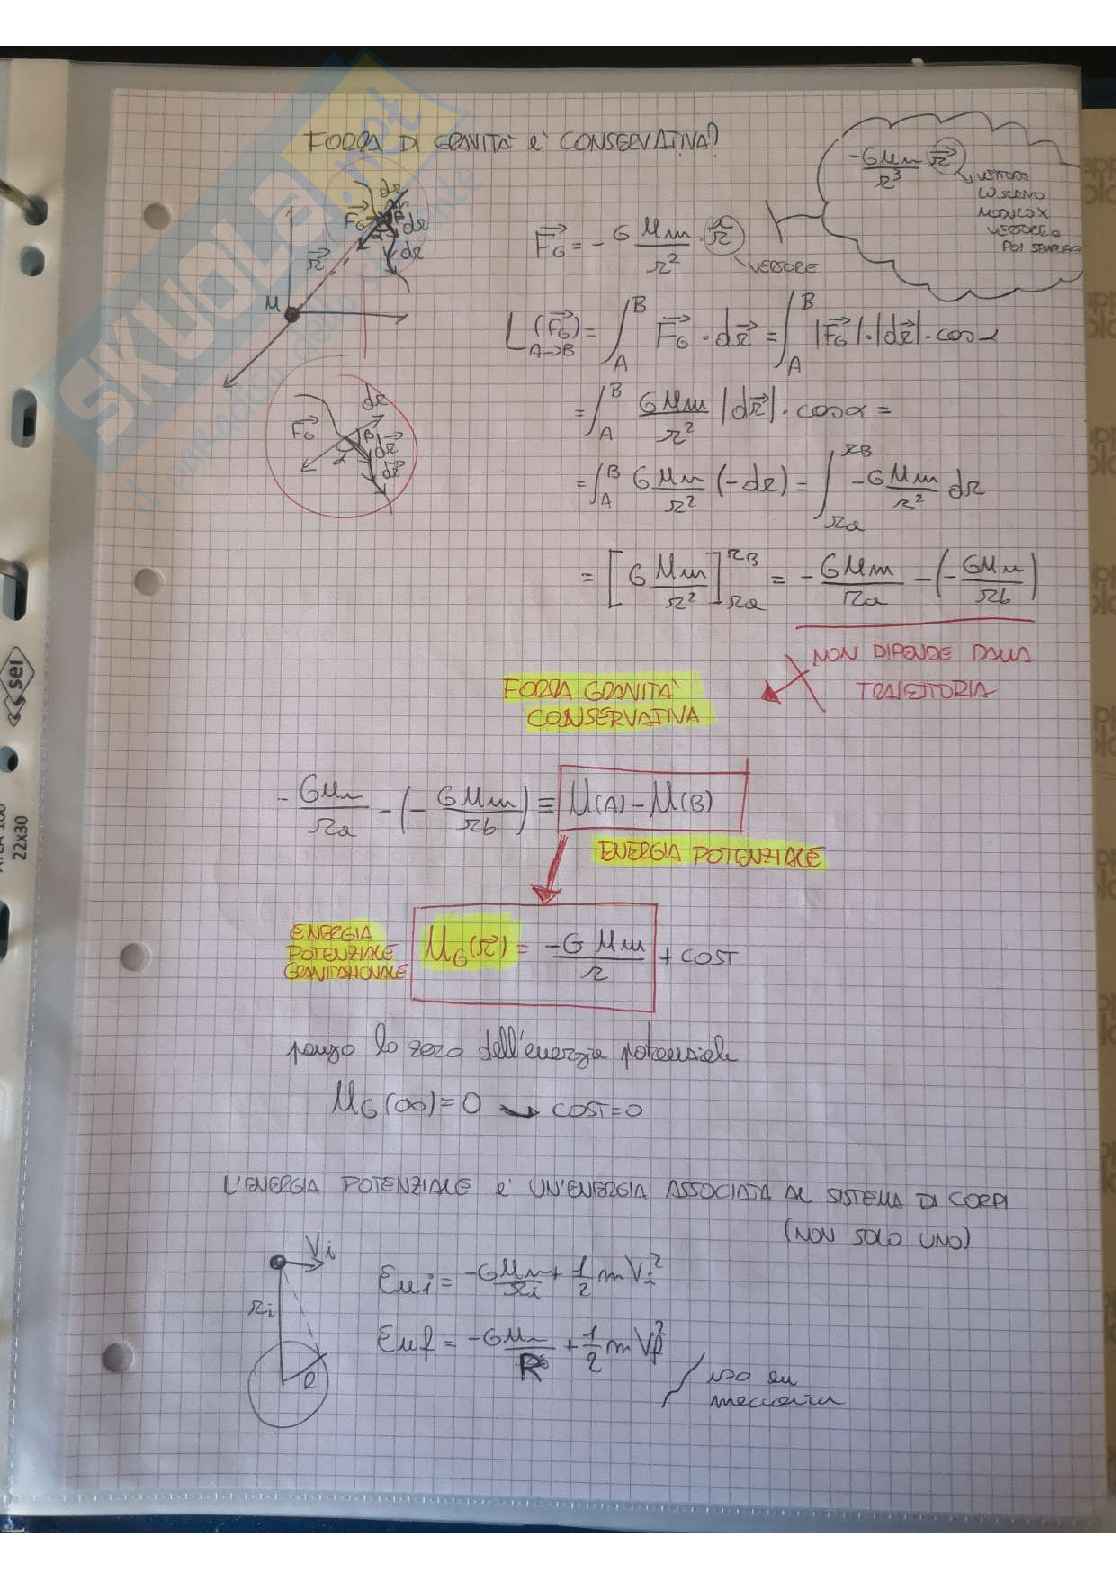 FORZA DI GRAVITA' e' CONSERVATIVA?
-GMm/r³ r⃗
VETTORE
LO SCRIVO
MODULO X
VERSORE
POI
F⃗G = -G Mm/r² · r̂
VERSORE
dr
F⃗G
dr⃗
dr⃗
r⃗
M
L A→B (F⃗G) = ∫_A^B F⃗G · dr⃗ = ∫_A^B |F⃗G|·|dr⃗|·cosα
= ∫_A^B GMm/r² |dr⃗|·cosα =
dr
F⃗G
β
α
dr⃗
dr⃗
= ∫_A^B G Mm/r² (-dr) = ∫_ra^rB -G Mm/r² dr
= [G Mm/r²]_ra^rB = -GMm/ra - (-GMm/rb)
NON DIPENDE DALLA
TRAIETTORIA
FORZA GRAVITA'
CONSERVATIVA
-GMm/ra - (-GMm/rb) = U(A) - U(B)
ENERGIA POTENZIALE
ENERGIA
POTENZIALE
GRAVITAZIONALE
UG(r) = -G Mm/r + COST
pongo lo zero dell'energia potenziale
UG(∞)=0 → COST=0
L'ENERGIA POTENZIALE e' UN'ENERGIA ASSOCIATA AL SISTEMA DI CORPI
(NON SOLO UNO)
Vi
ri
R
Emi = -GMm/ri + 1/2 mVi²
Emf = -GMm/R + 1/2 mVf²
uso en
meccanica
SKUOLA.net
sei
22x30